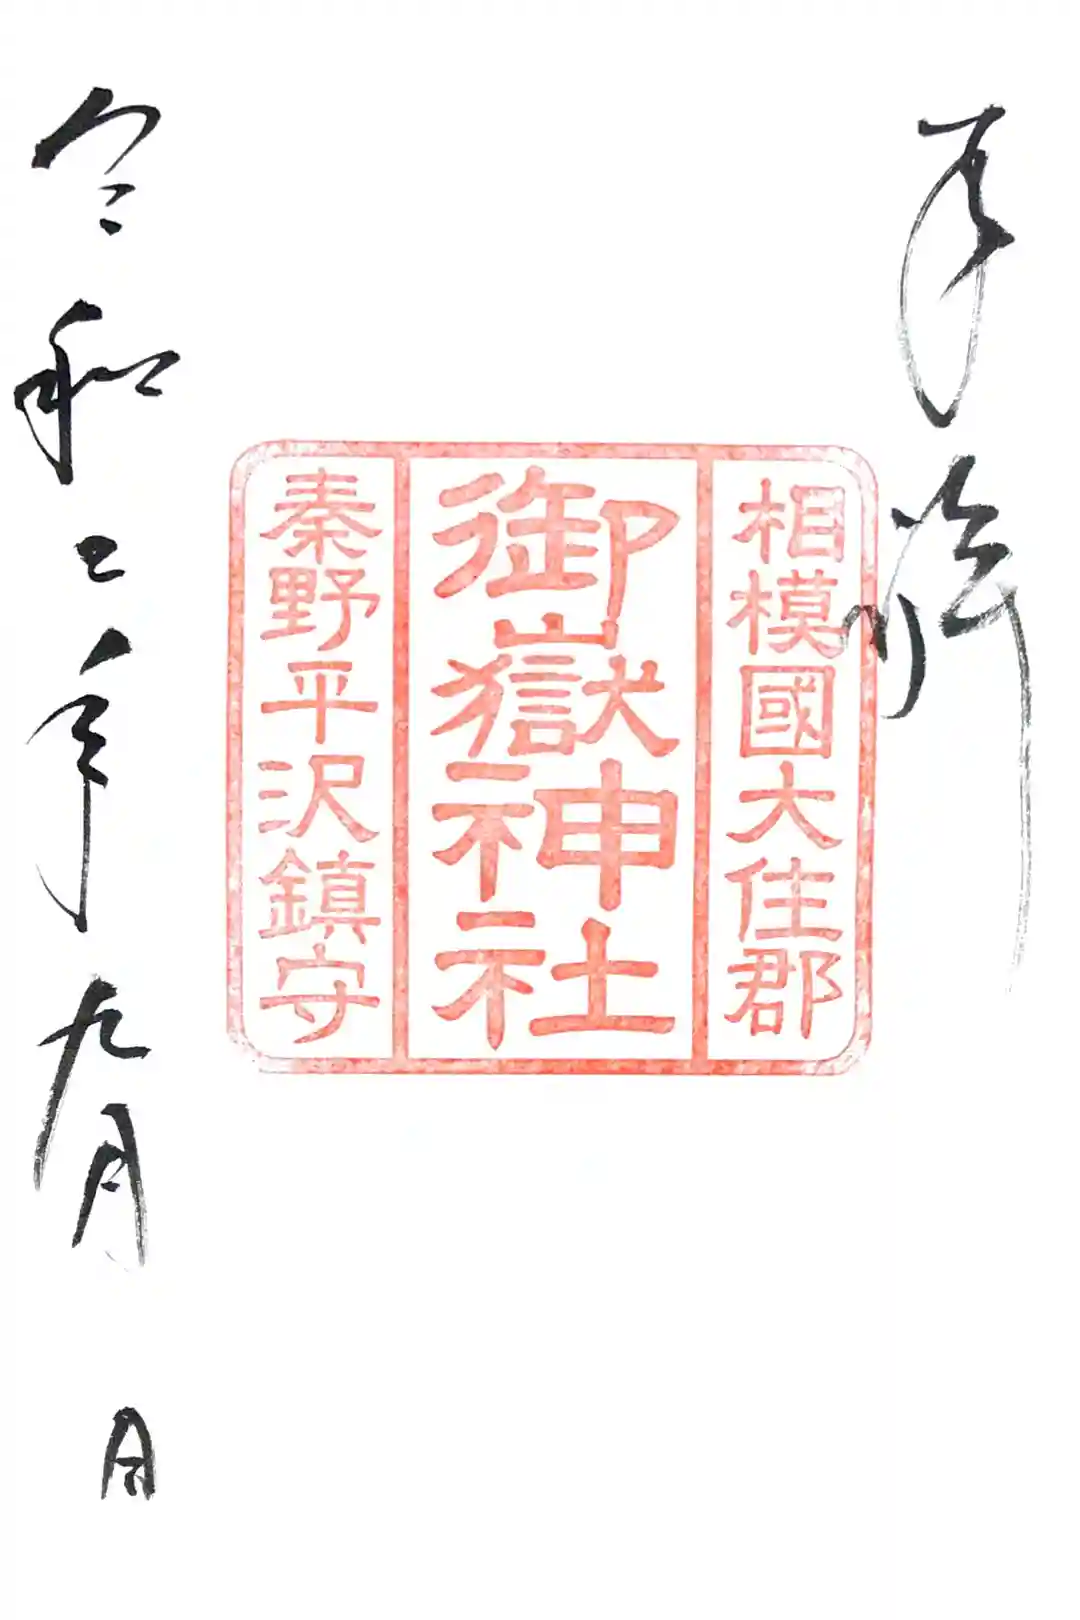 奉拝
相模國大住郡
御嶽神社
秦野平沢鎮守
令和二年九月 日